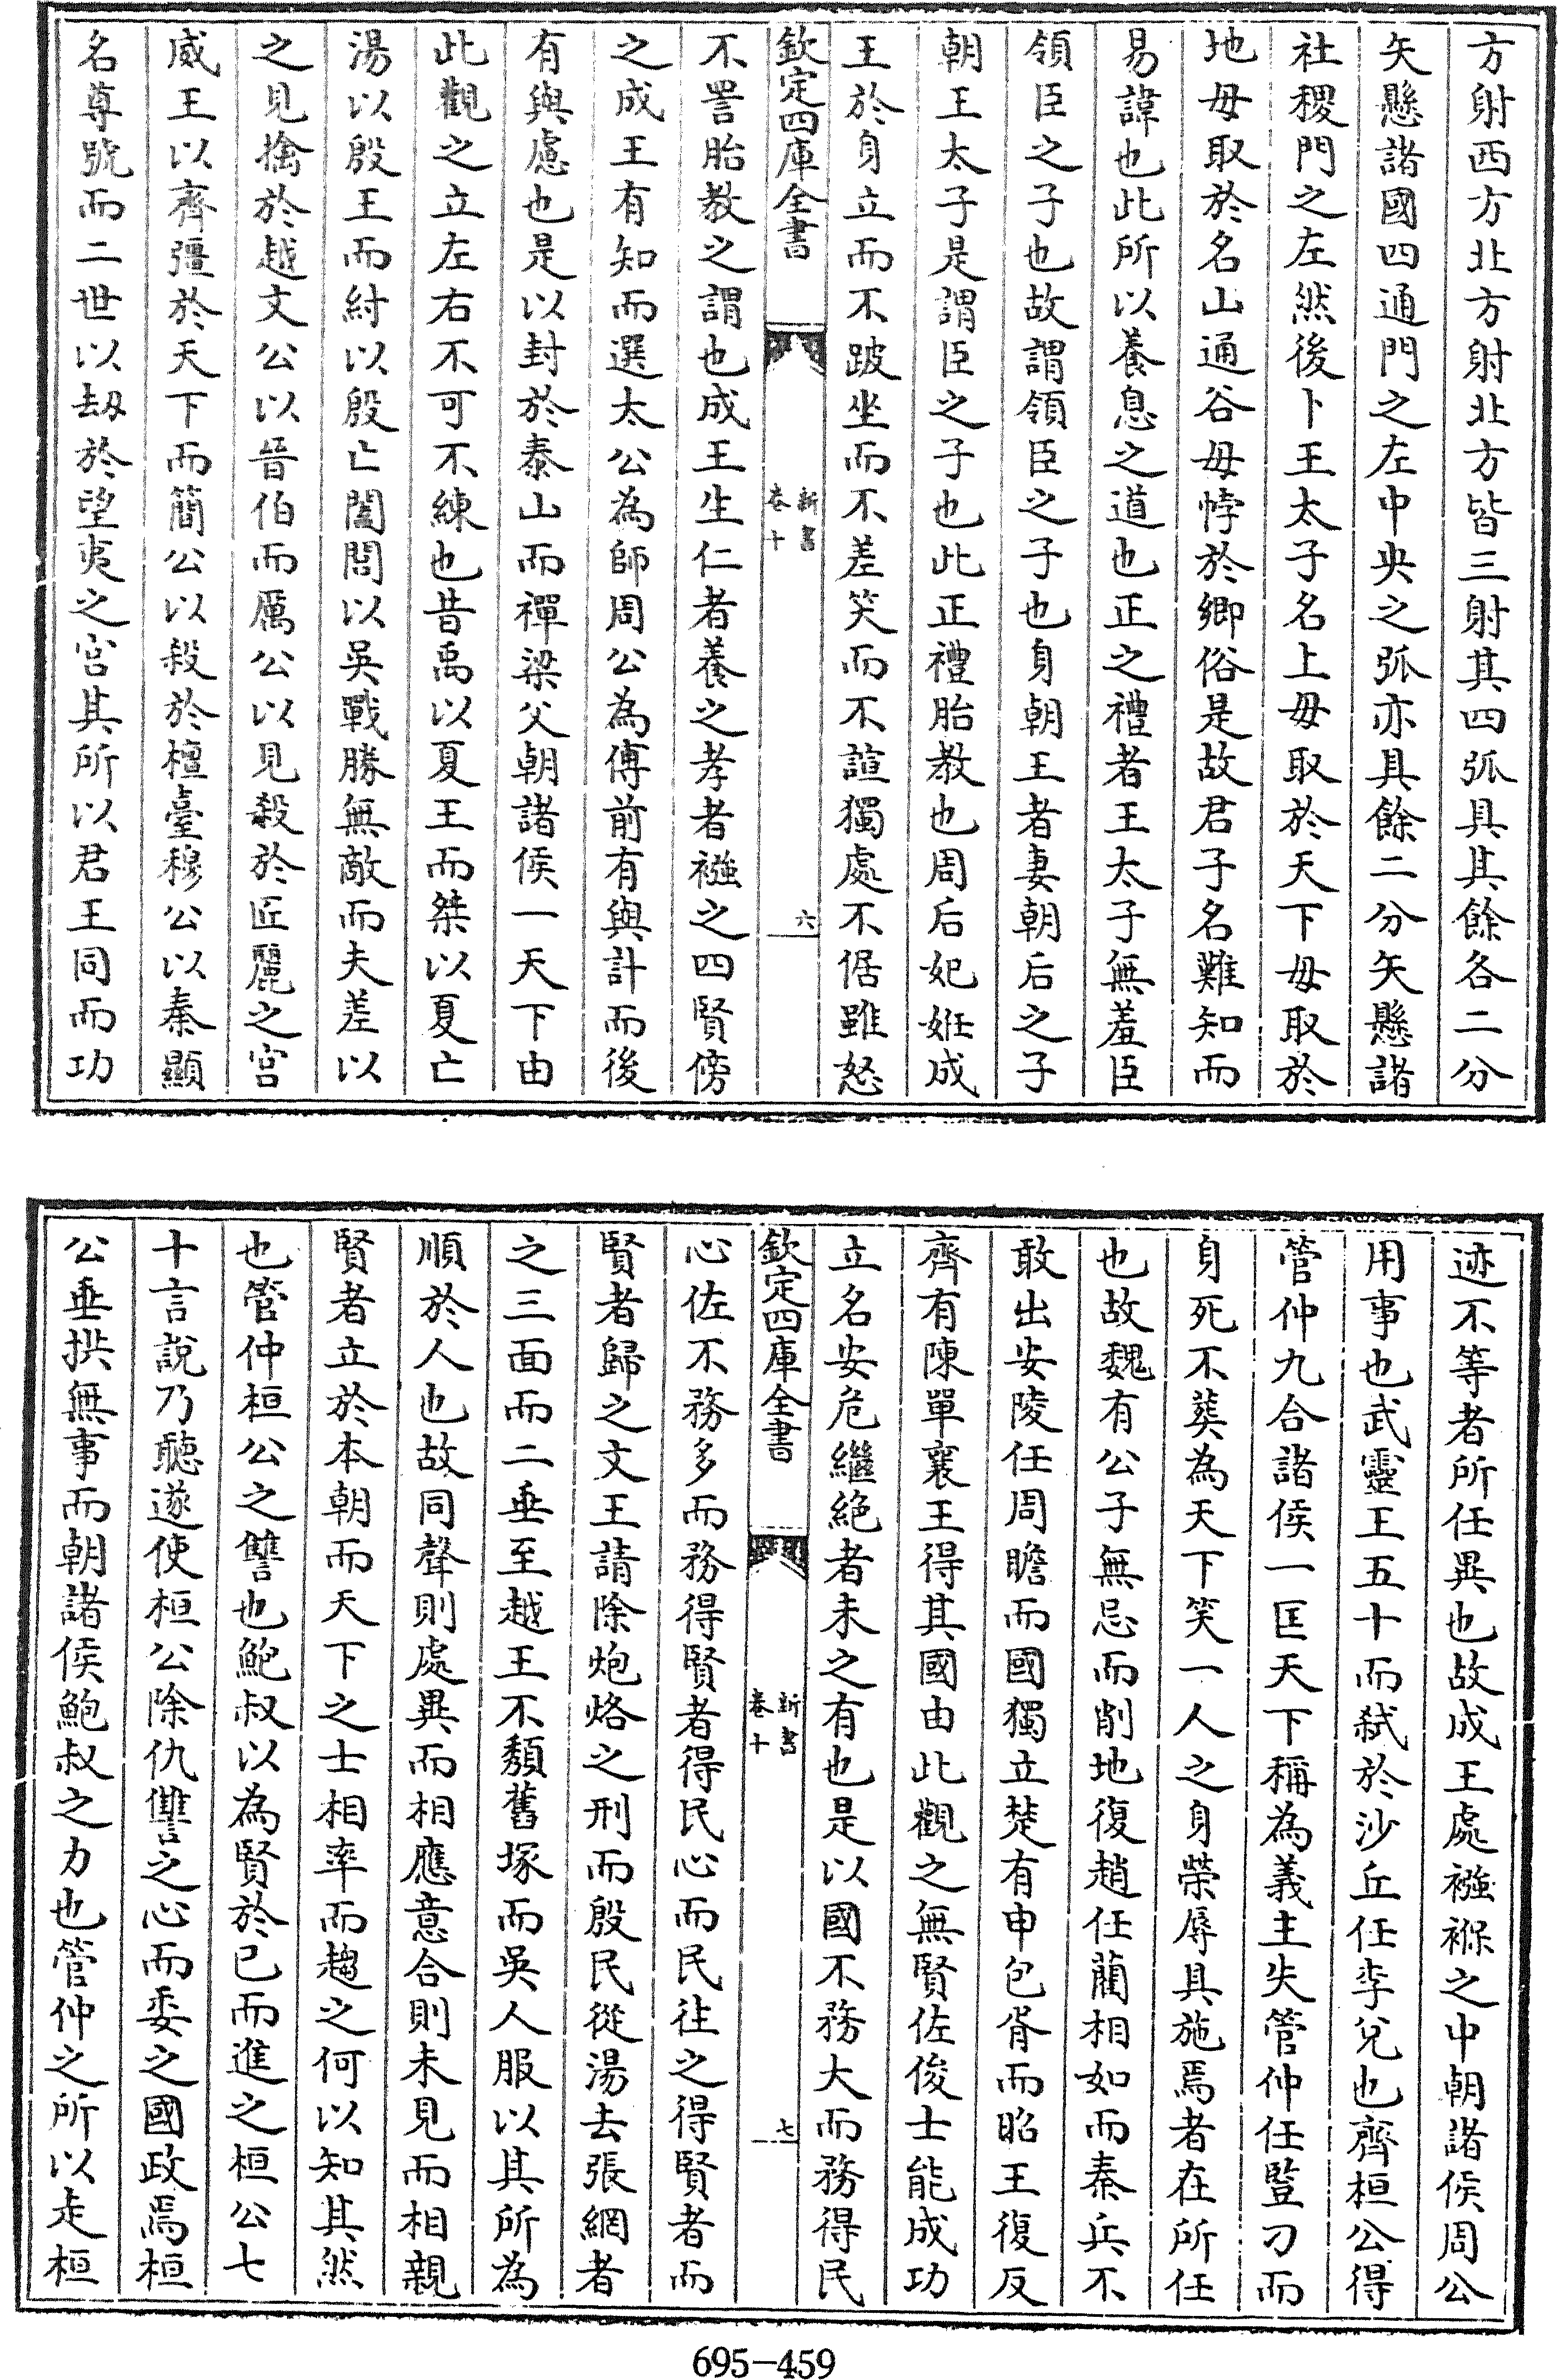 方射西方北方射北方皆三射其四弧具其餘各二分
矢懸諸國四通門之左中央之弧亦具餘二分矢懸諸
社稷門之左然後卜王太子名上毋取於天下毋取於
地毋取於名山通谷毋悖於鄉俗是故君子名難知而
易諱也此所以養息之道也正之禮者王太子無羞臣
領臣之子也故謂領臣之子也身朝王者妻朝后之子
朝王太子是謂臣之子也此正禮胎教也周后妃姙成
王於身立而不跛坐而不差笑而不諠獨處不倨雖怒
欽定四庫全書
新書
卷十
六
不詈胎教之謂也成王生仁者養之孝者襁之四賢傍
之成王有知而選太公為師周公為傅前有與計而後
有與慮也是以封於泰山而禪梁父朝諸侯一天下由
此觀之立左右不可不練也昔禹以夏王而桀以夏亡
湯以殷王而紂以殷亡闔閭以吳戰勝無敵而夫差以
之見擒於越文公以晉伯而厲公以見殺於匠麗之宮
威王以齊彊於天下而簡公以殺於檀臺穆公以秦顯
名尊號而二世以刼於望夷之宮其所以君王同而功
迹不等者所任異也故成王處襁褓之中朝諸侯周公
用事也武靈王五十而弒於沙丘任李兌也齊桓公得
管仲九合諸侯一匡天下稱為義主失管仲任豎刁而
身死不葬為天下笑一人之身榮辱具施焉者在所任
也故魏有公子無忌而削地復趙任藺相如而秦兵不
敢出安陵任周瞻而國獨立楚有申包胥而昭王復反
齊有陳單襄王得其國由此觀之無賢佐俊士能成功
立名安危繼絕者未之有也是以國不務大而務得民
欽定四庫全書
新書
卷十
七
心佐不務多而務得賢者得民心而民往之得賢者而
賢者歸之文王請除炮烙之刑而殷民從湯去張網者
之三面而二垂至越王不頹舊塚而吳人服以其所為
順於人也故同聲則處異而相應意合則未見而相親
賢者立於本朝而天下之士相率而趨之何以知其然
也管仲桓公之讐也鮑叔以為賢於已而進之桓公七
十言說乃聽遂使桓公除仇讐之心而委之國政焉桓
公垂拱無事而朝諸侯鮑叔之力也管仲之所以走桓
695-459